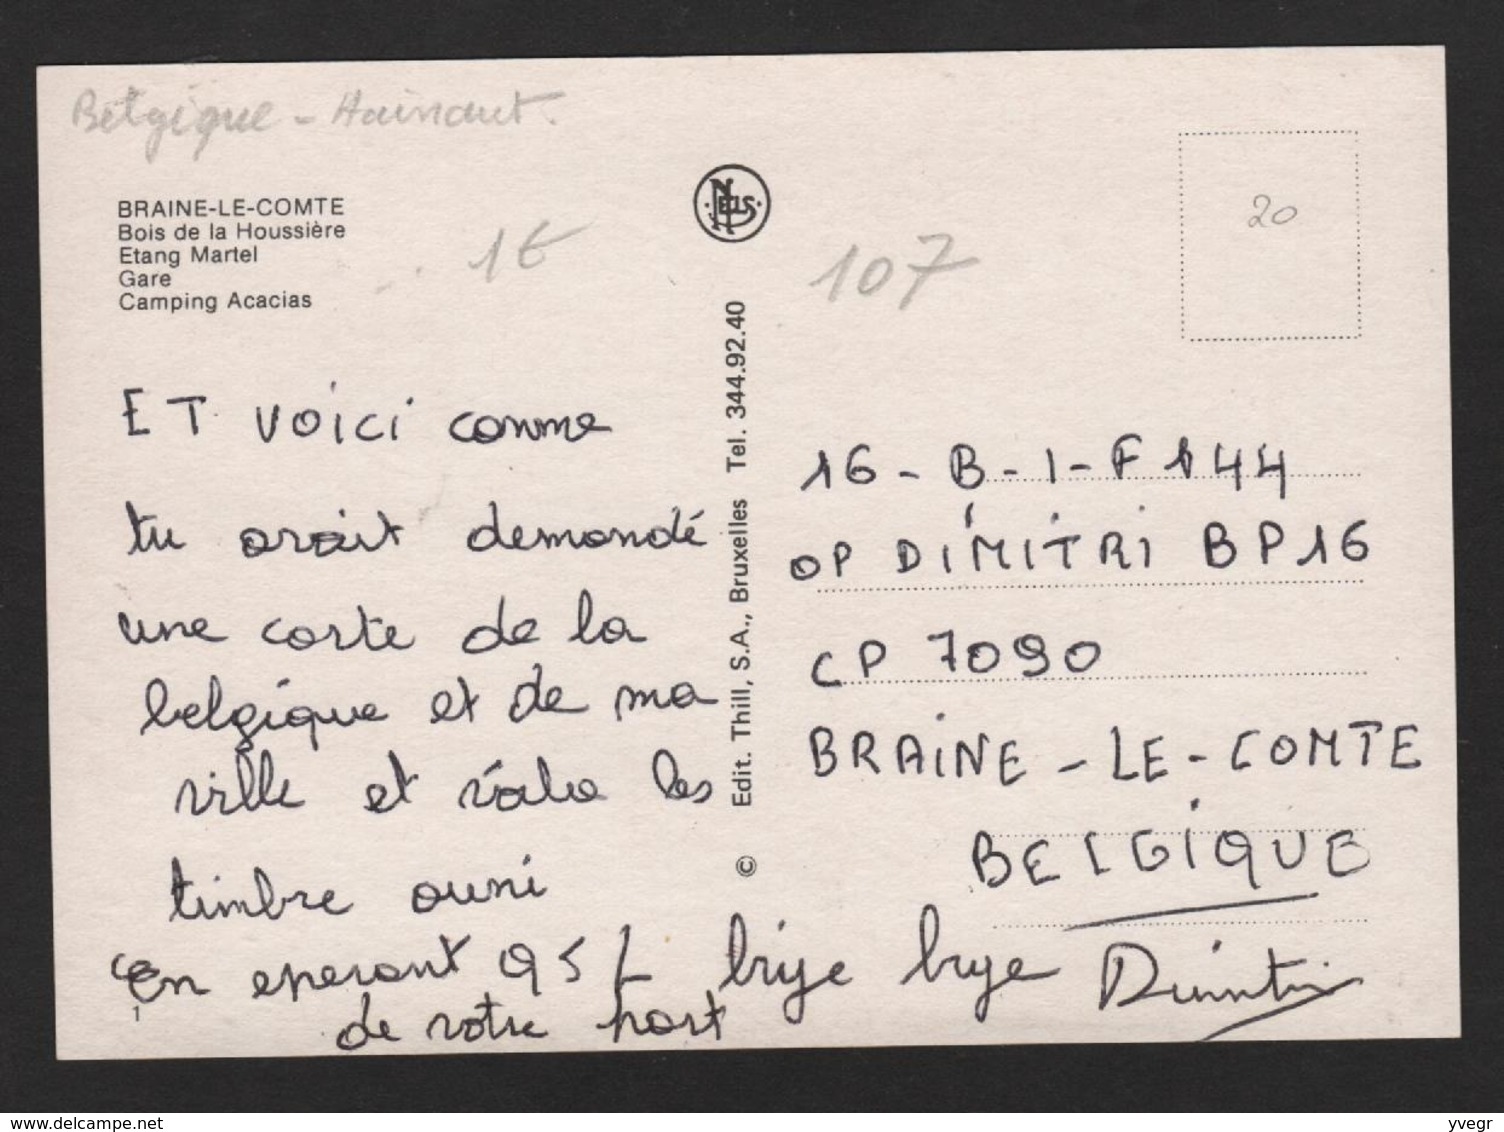 Belgique - Hainaut.
BRAINE-LE-COMTE
Bois de la Houssière
Etang Martel
Gare
Camping Acacias
1€
NELS
107
20
ET VOICI comme
tu avait demandé
une carte de la
belgique et de ma
ville et les
timbre ouni
en eperant QSL
de votre part
1
© Edit. Thill, S.A., Bruxelles Tel. 344.92.40
16 - B - I - F 144
OP DIMITRI BP16
CP 7090
BRAINE - LE - COMTE
BELGIQUE
bye bye Dimitri
delcampe.net
yvegr